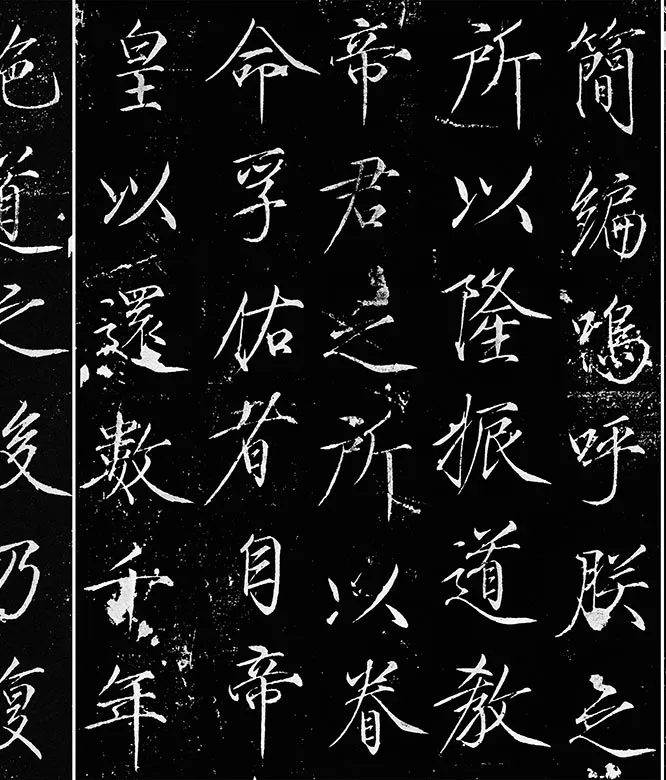 簡編嗚呼朕之
所以隆振道教
帝君之所以眷
命孚佑者自帝
皇以還數千年
絶道之後乃復